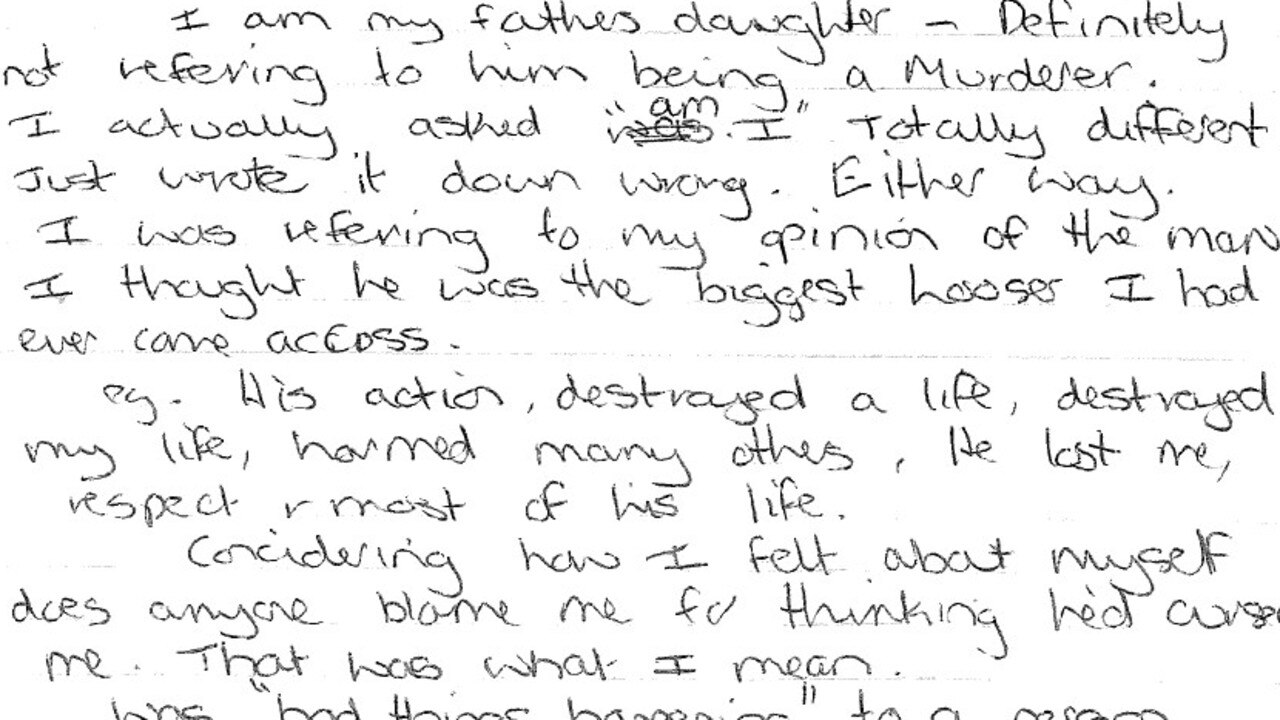 I am my fathes daughter - Definitely
not refering to him being a Murderer.
I actually asked "am I" Totally different
Just wrote it down wrong. Either way.
I was refering to my opinion of the man
I thought he was the biggest looser I had
ever came across.
eg. His action, destroyed a life, destroyed
my life, harmed many othes, He lost me,
respect r most of his life.
Concidering how I felt about myself
does anyone blame me for thinking he'd curse
me. That was what I mean.
was "bad things happening" to a person